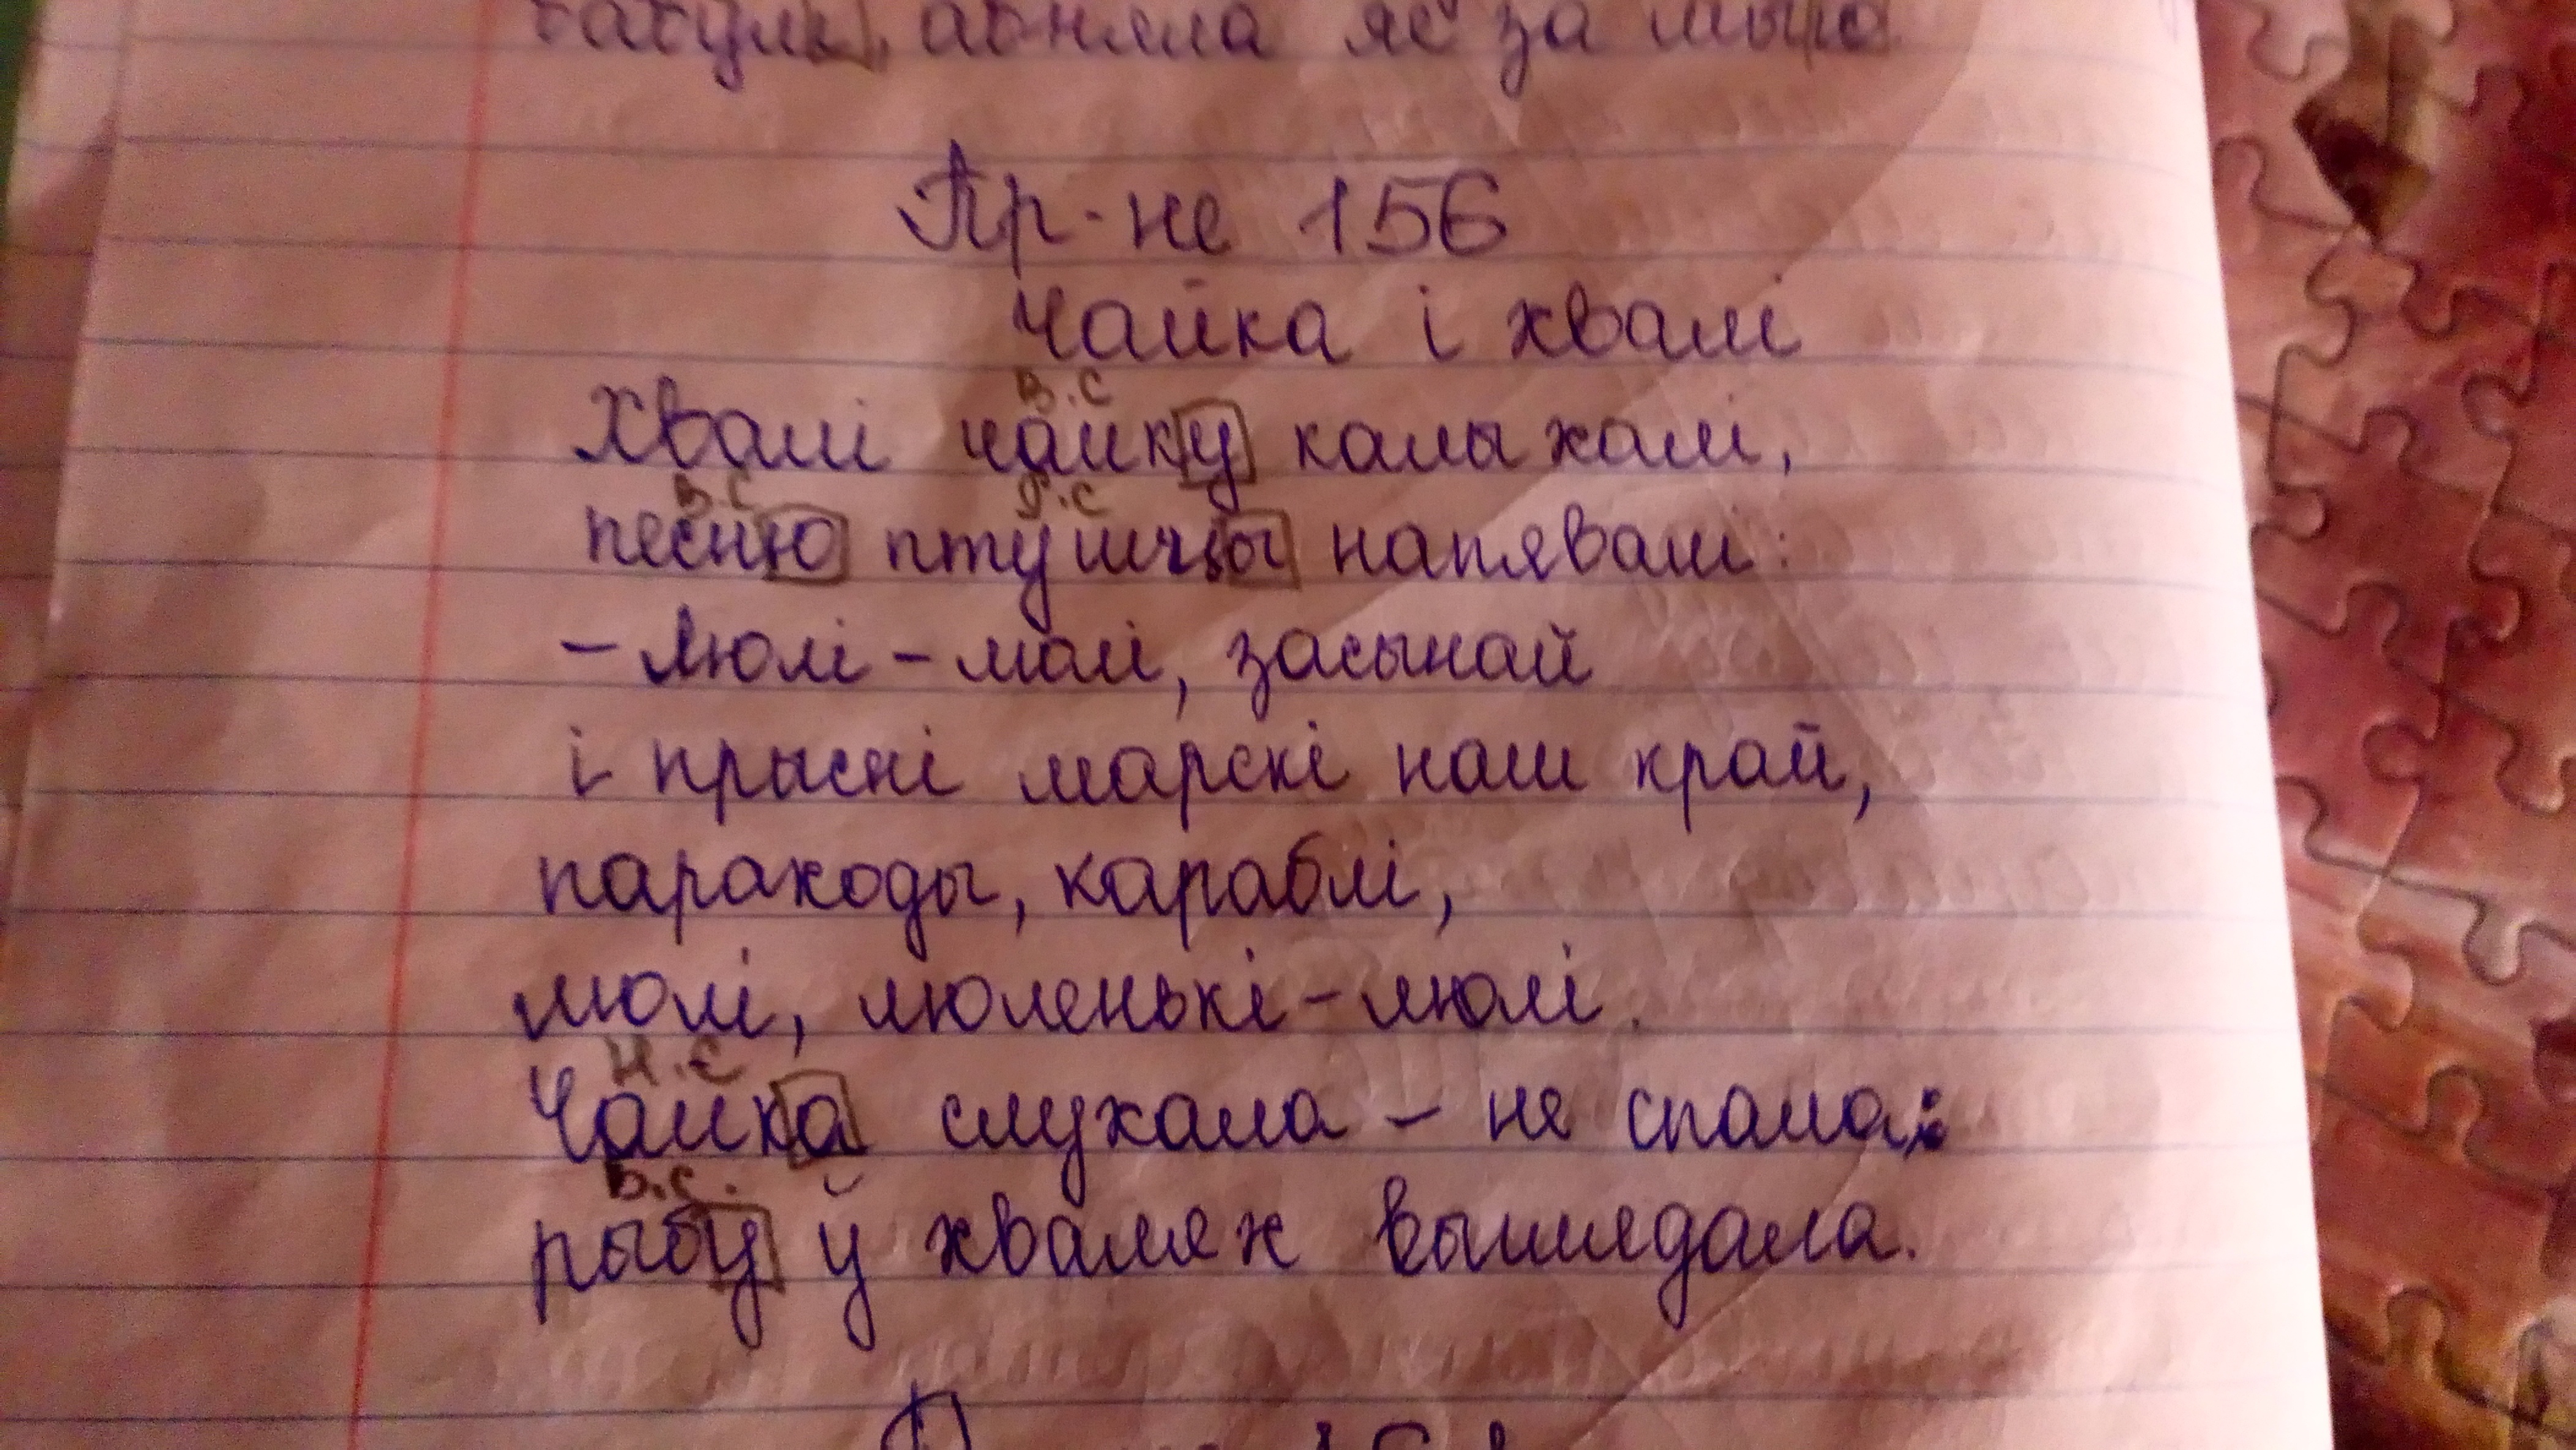 абняла яе за
Пр-не 156
Чайка і хвалі
В.С
Хвалі чайку калыхалі,
В.С Д.С
песню птушцы напявалі:
- Люлі - люлі, засынай
і прысні марскі наш край,
параходы, караблі,
люлі, люленькі - люлі.
Н.С
Чайка слухала - не спала:
В.С.
рыбу ў хвалях выглядала.